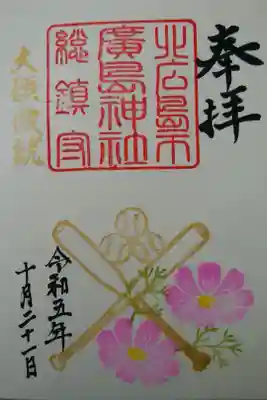 奉拝
北広島市
廣島神社
総鎮守
令和五年
十月二十一日